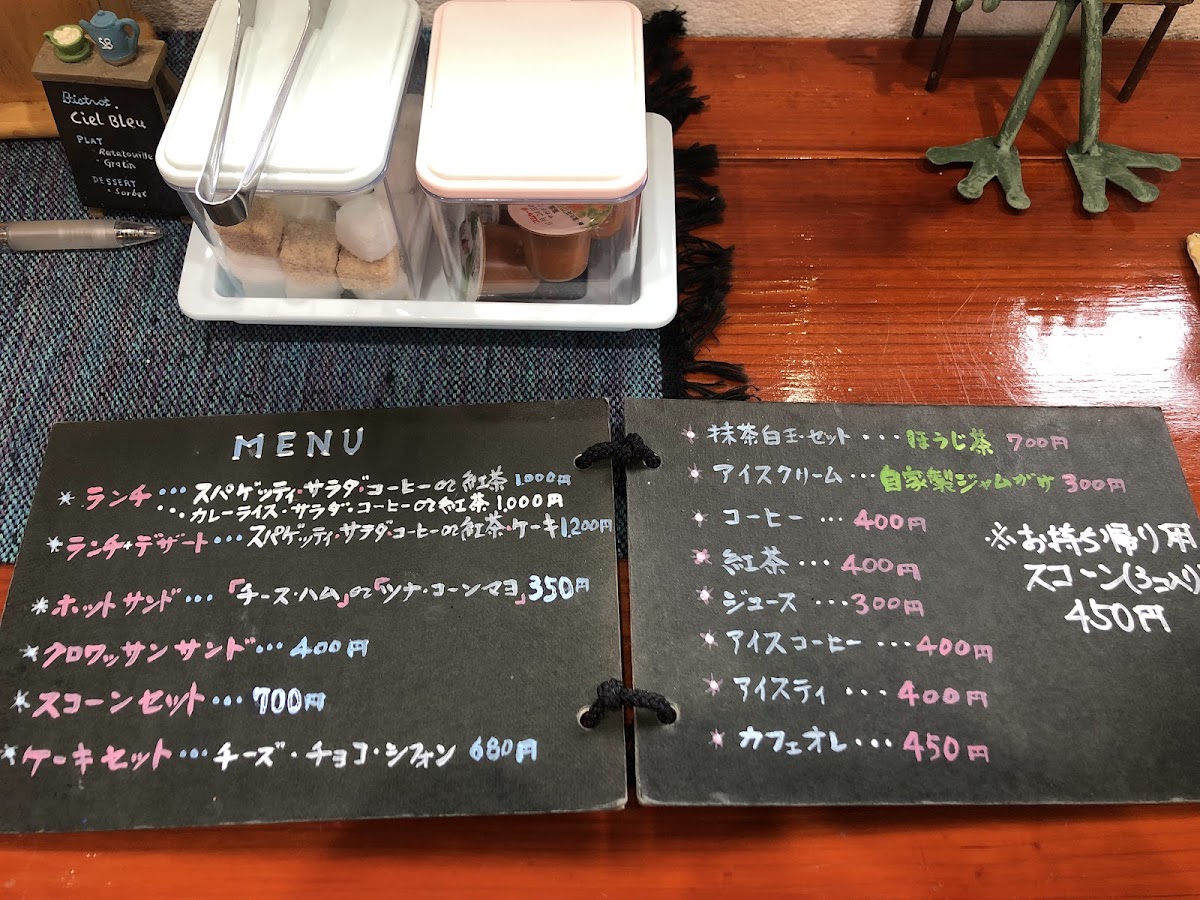 58
Bistrot.
Ciel Bleu
PLAT
・Ratatouille
・Gratin
DESSERT
・Sorbet
MENU
* ランチ ・・・ スパゲッティ・サラダ・コーヒーor紅茶 1.000円
・・・ カレーライス・サラダ・コーヒーor紅茶 1.000円
* ランチ+デザート・・・スパゲッティ・サラダ・コーヒーor紅茶・ケーキ1.200円
* ホットサンド・・・「チーズ・ハム」or「ツナ・コーンマヨ」350円
* クロワッサンサンド・・・400円
* スコーンセット・・・700円
* ケーキセット・・・チーズ・チョコ・シフォン 680円
* 抹茶白玉・セット・・・ほうじ茶 700円
* アイスクリーム・・・自家製ジャムがけ 300円
* コーヒー ・・・400円
* 紅茶・・・400円
* ジュース ・・・300円
* アイスコーヒー・・・400円
* アイスティ ・・・400円
* カフェオレ・・・450円
※お持ち帰り用
スコーン(3コ入り)
450円